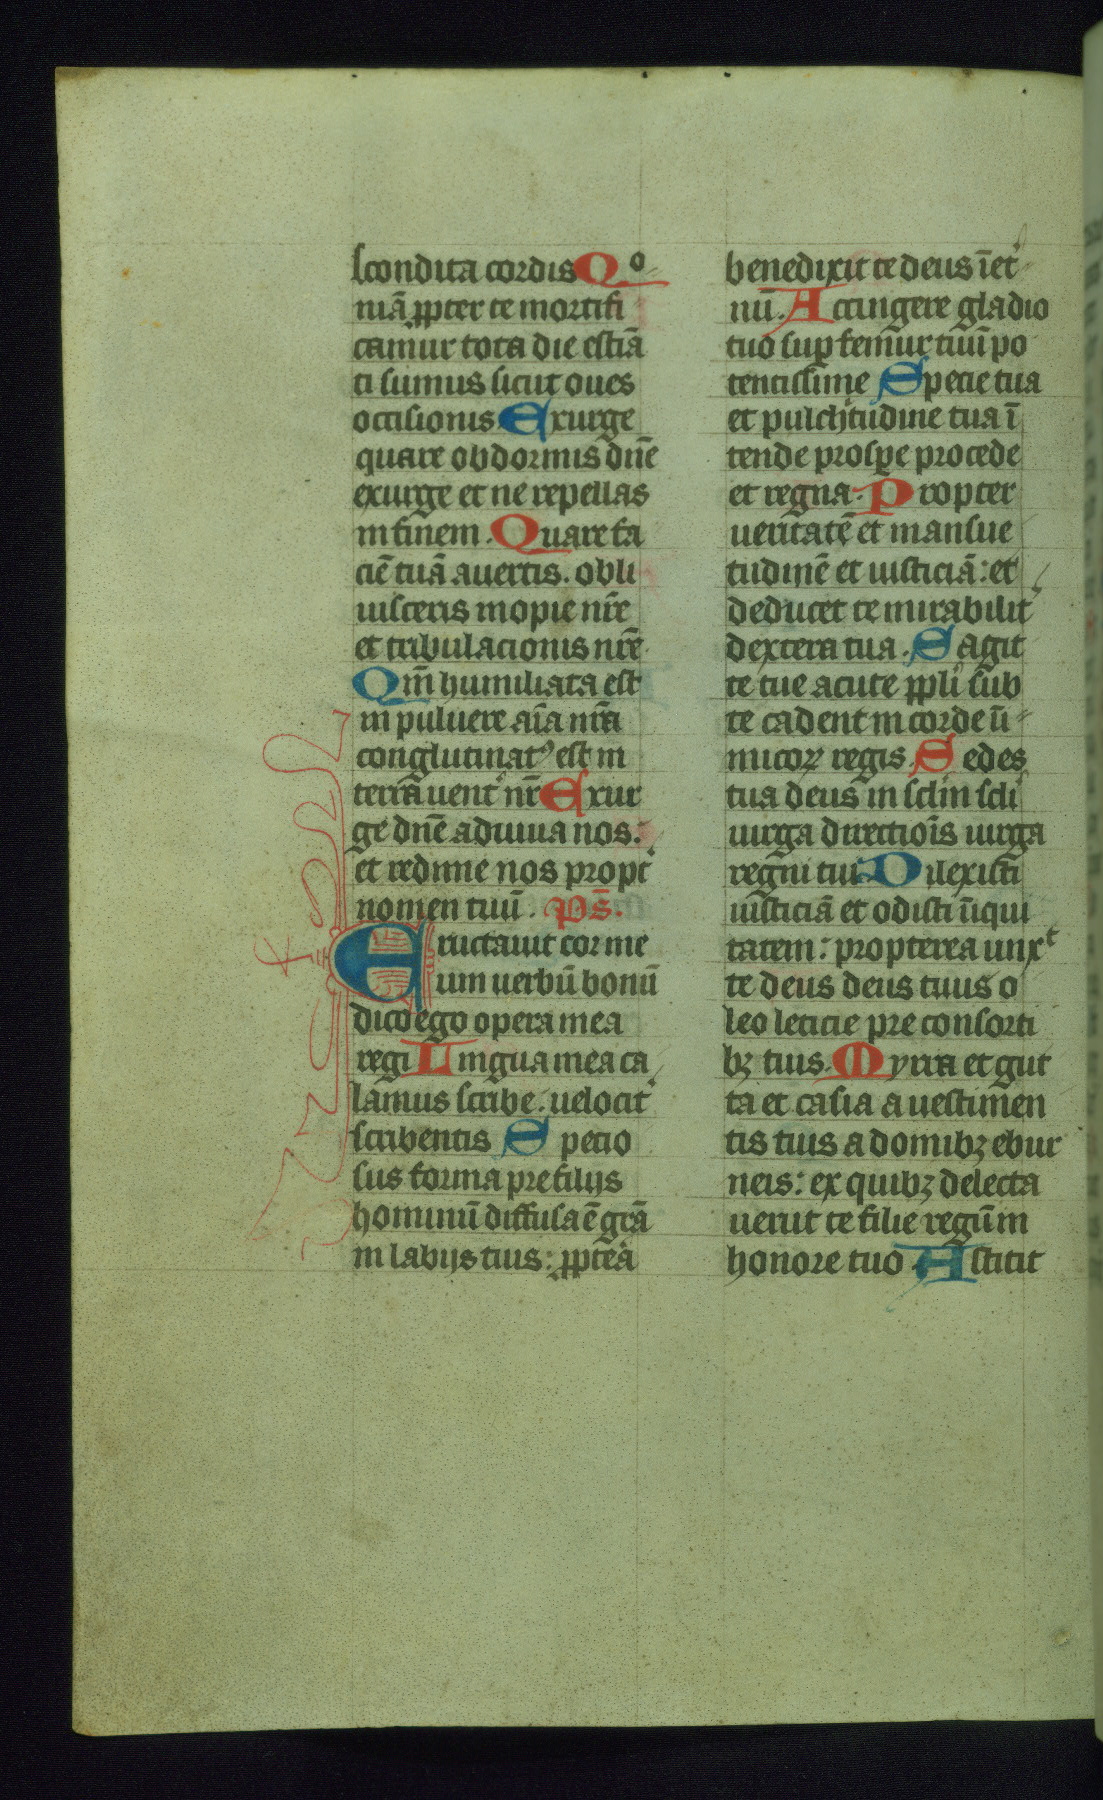 scondita cordis Qo
niā ꝓpter te mortifi
camur tota die estīā
ti sumus sicut oues
occisionis Exurge
quare obdormis dn̄e
exurge et ne repellas
in finem. Quare fa
ciē tuā auertis. obli
uisceris inopie nr̄e
et tribulacionis nr̄e
Qm̄ humiliata est
in puluere aīa nr̄a
conglutinatꝰ est in
terrā uent̉ nr̄ Exur
ge dn̄e adiuua nos:
et redime nos propt̉
nomen tuū. Ps̄.
Eructauit cor me
um uerbū bonū
dico ego opera mea
regi Lingua mea ca
lamus scribe. uelocit̉
scribentis Specio
sus forma pre filijs
hominū diffusa ē grā
in labijs tuis: ꝓpterea
benedixit te deus ī et̉
nū. Accingere gladio
tuo suꝑ femur tuūi po
tentissime Specie tua
et pulch̉tudine tua ī
tende prosꝑe procede
et regna. Propter
ueritatē et mansue
tudinē et iusticiā: et
deducet te mirabilit̉
dextera tua. Sagit
te tue acute ppl̉i sub
te cadent in corde ī
micoꝝ regis Sedes
tua deus in sclm̄ scli̅
uirga directiōis uirga
regni tui Dilexisti
iusticiā et odisti īiqui
tatem: propterea unxt
te deus deus tuus o
leo leticie pre consorti
bꝫ tuis. Myrra et gut
ta et casia a uestimen
tis tuis a domibꝫ ebur
neis: ex quibꝫ delecta
uerūt te filie regūm in
honore tuo Astitit